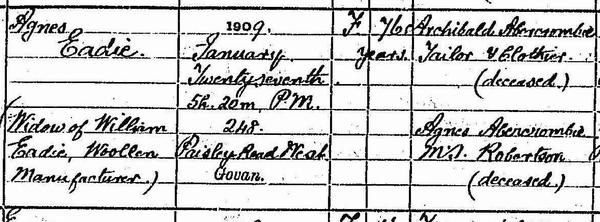 Agnes
Eadie.
(Widow of William
Eadie, Woollen
Manufacturer.)
1909.
January
Twenty seventh
5h. 20m. P.M.
248.
Paisley Road West
Govan.
F
76
years.
Archibald Abercrombie
Tailor & Clothier.
(deceased.)
Agnes Abercrombie
M.S. Robertson
(deceased.)